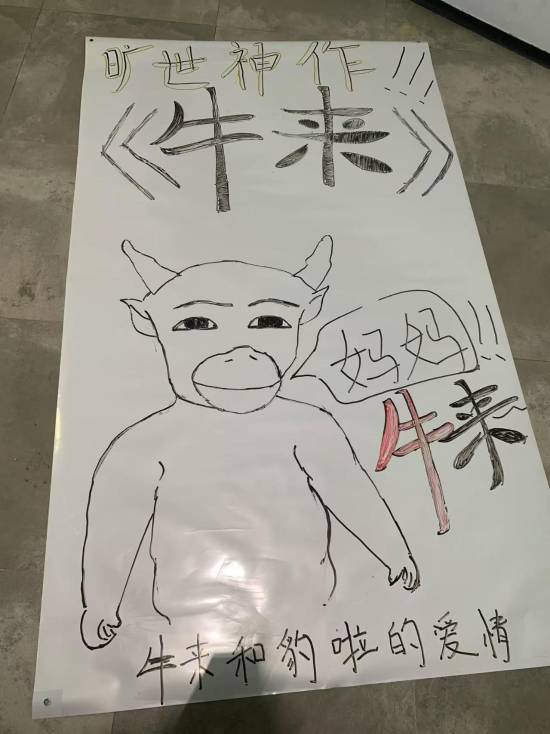 旷世神作!!!
《牛来》
妈妈!!!
牛来~
牛来和豹啦的爱情